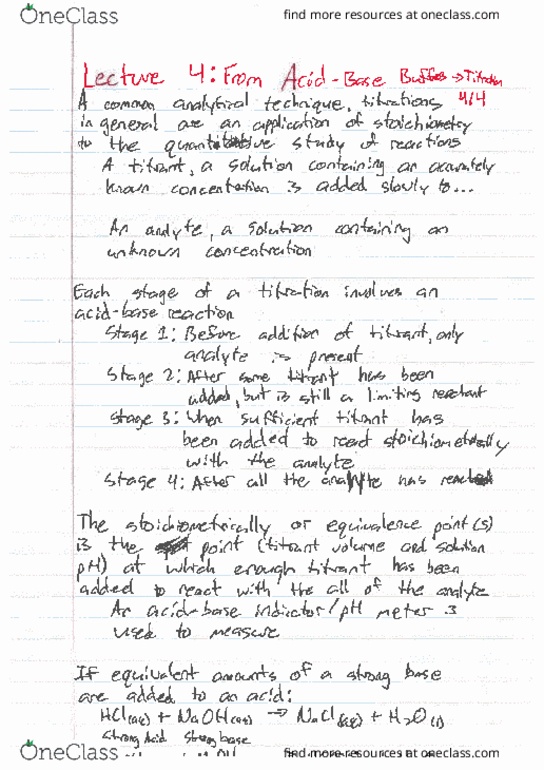 OneClass find more resources at oneclass.com
Lecture 4: From Acid-Base Buffers → Titration
4/4
A common analytical technique, titrations
in general are an application of stoichiometry
to the quantitative study of reactions
A titrant, a solution containing an accurately
known concentration is added slowly to...
An analyte, a solution containing an
unknown concentration
Each stage of a titration involves an
acid-base reaction
Stage 1: Before addition of titrant, only
analyte is present
Stage 2: After some titrant has been
added, but is still a limiting reactant
Stage 3: When sufficient titrant has
been added to react stoichiometrically
with the analyte
Stage 4: After all the analyte has reacted
The stoichiometrically or equivalence point(s)
is the point (titrant volume and solution
pH) at which enough titrant has been
added to react with the all of the analyte
An acid-base indicator/pH meter is
used to measure
If equivalent amounts of a strong base
are added to an acid:
HCl(aq) + NaOH(aq) → NaCl(aq) + H2O(l)
Strong Acid Strong base
OneClass find more resources at oneclass.com